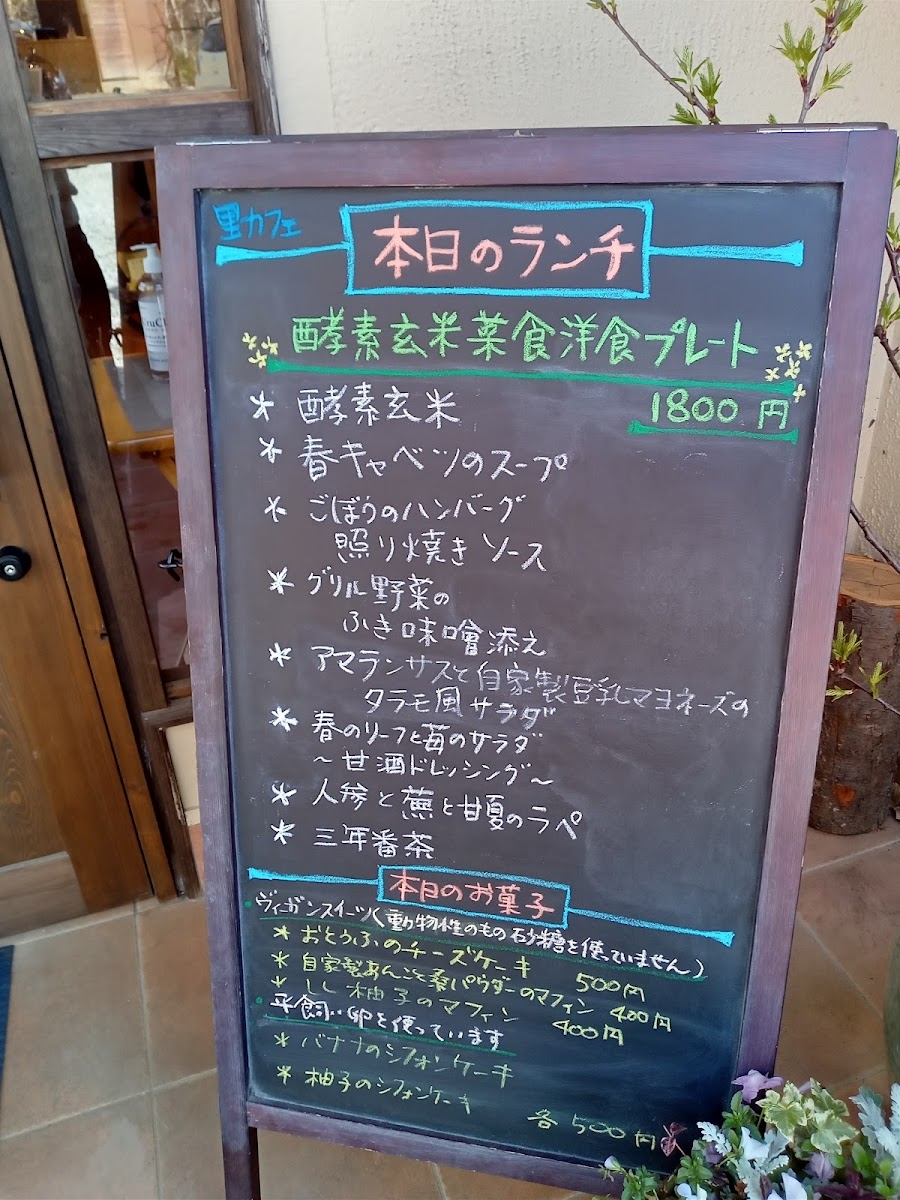 里カフェ
本日のランチ
酵素玄米菜食洋食プレート
1800円
* 酵素玄米
* 春キャベツのスープ
* ごぼうのハンバーグ
照り焼きソース
* グリル野菜の
ふき味噌添え
* アマランサスと自家製豆乳マヨネーズの
タラモ風サラダ
* 春のリーフと苺のサラダ
～甘酒ドレッシング～
* 人参と蕪と甘夏のラペ
* 三年番茶
本日のお菓子
・ヴィーガンスイーツ(動物性のもの砂糖を使っていません)
* おとうふのチーズケーキ 500円
* 自家製あんこと桑パウダーのマフィン 400円
* しし柚子のマフィン 400円
・平飼い卵を使っています
* バナナのシフォンケーキ
* 柚子のシフォンケーキ
各500円